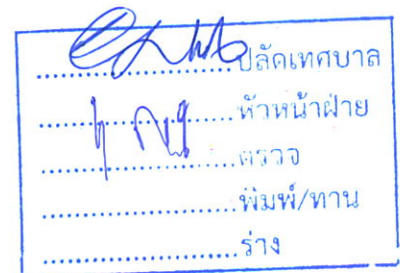 ....................ปลัดเทศบาล
....................หัวหน้าฝ่าย
....................ตรวจ
....................พิมพ์/ทาน
....................ร่าง